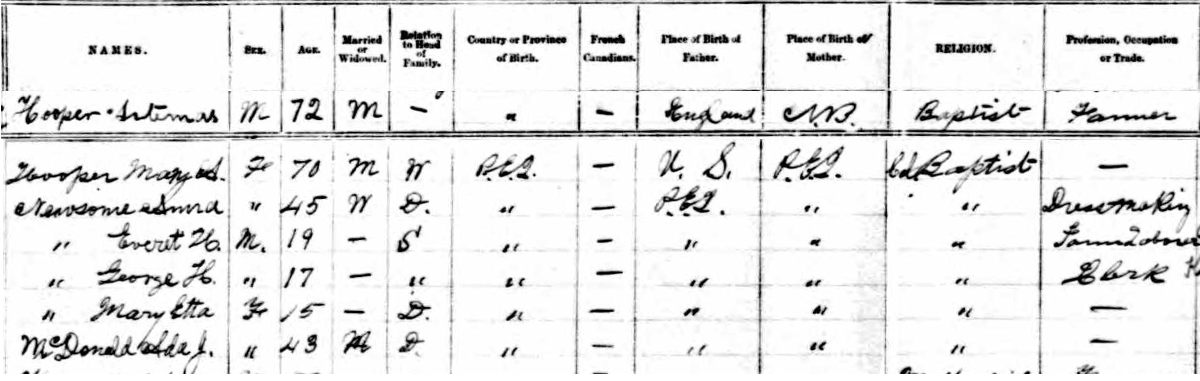 NAMES. SEX. AGE. Married or Widowed. Relation to Head of Family. Country or Province of Birth. French Canadians. Place of Birth of Father. Place of Birth of Mother. RELIGION. Profession, Occupation or Trade.
Hooper Artemus M 72 M - " - England N.B. Baptist Farmer
Hooper Mary A. Fe 70 M W P.E.I. - U. S. P.E.I. Baptist -
Newsome " 45 W D. " - P.E.I. " " Dressmaking
" Everet H. M. 19 - S " - " " " Farm Laborer
" George H. " 17 - " " - " " " Clerk
" Mary Etta Fe 15 - D. " - " " " -
McDonald Ada J. " 43 M D. " - " " " -